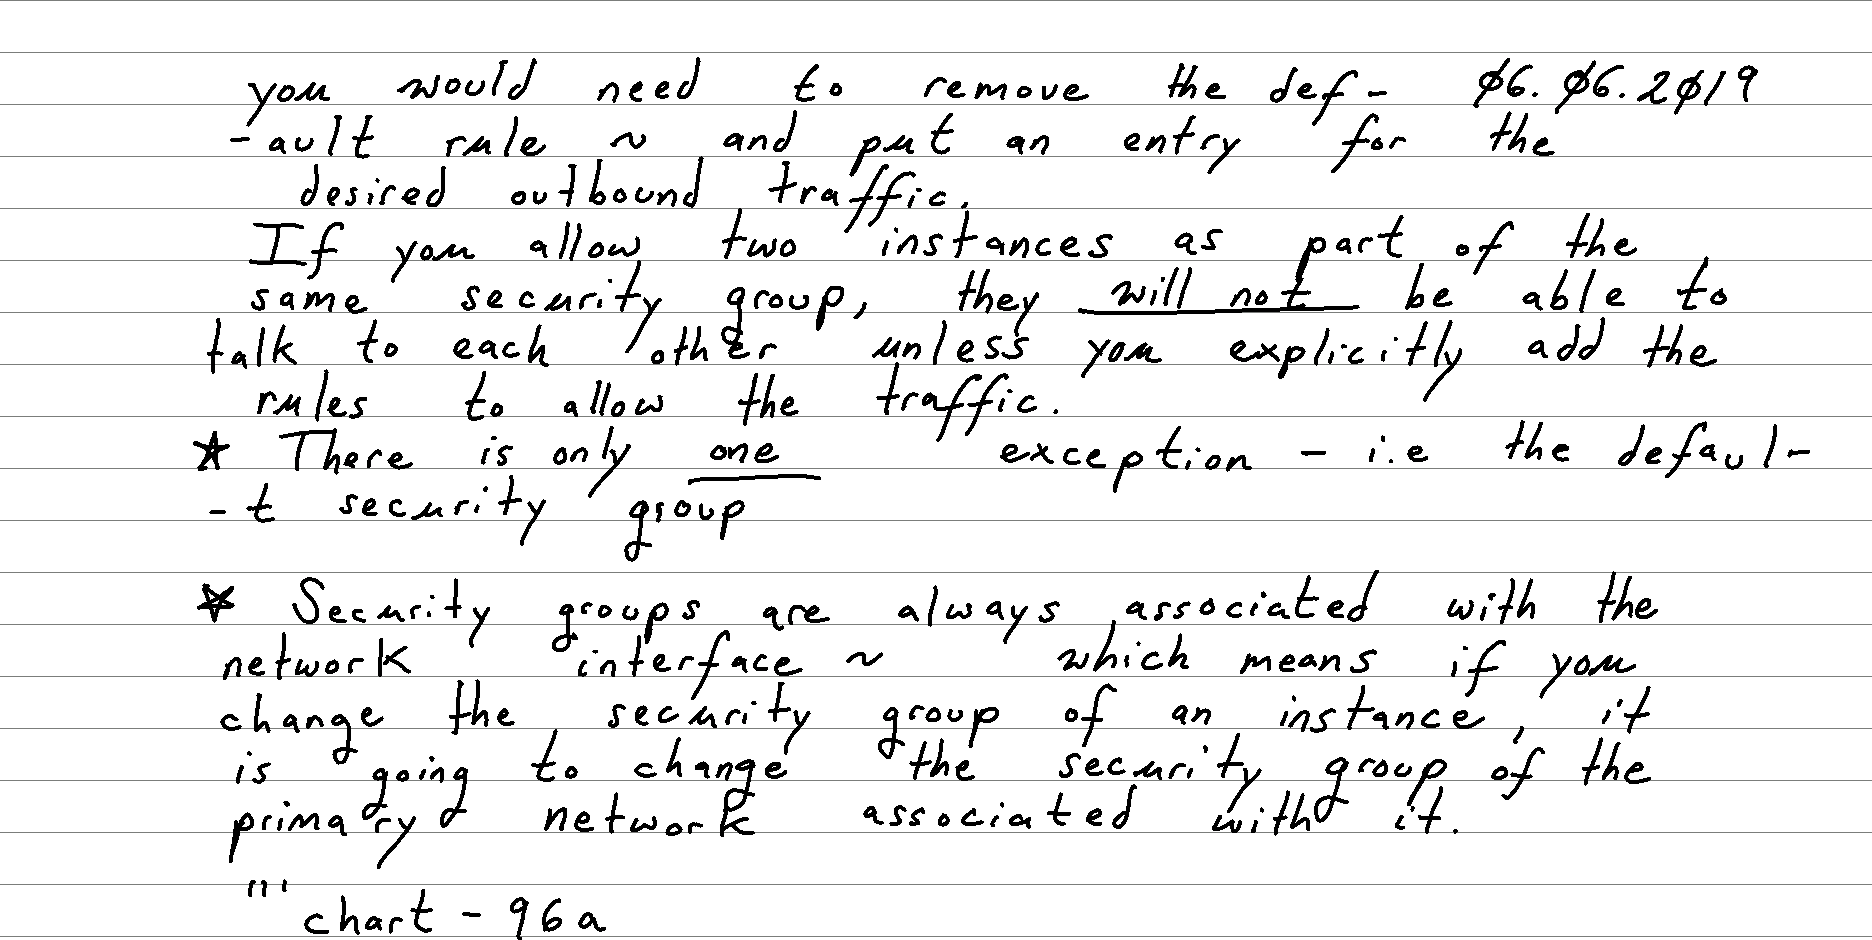 you would need to remove the def- 06.06.2019
-ault rule ~ and put an entry for the
desired outbound traffic.
If you allow two instances as part of the
same security group, they will not be able to
talk to each other unless you explicitly add the
rules to allow the traffic.
* There is only one exception - i.e the defaul-
-t security group
* Security groups are always associated with the
network interface ~ which means if you
change the security group of an instance, it
is going to change the security group of the
primary network associated with it.
"' chart - 96a